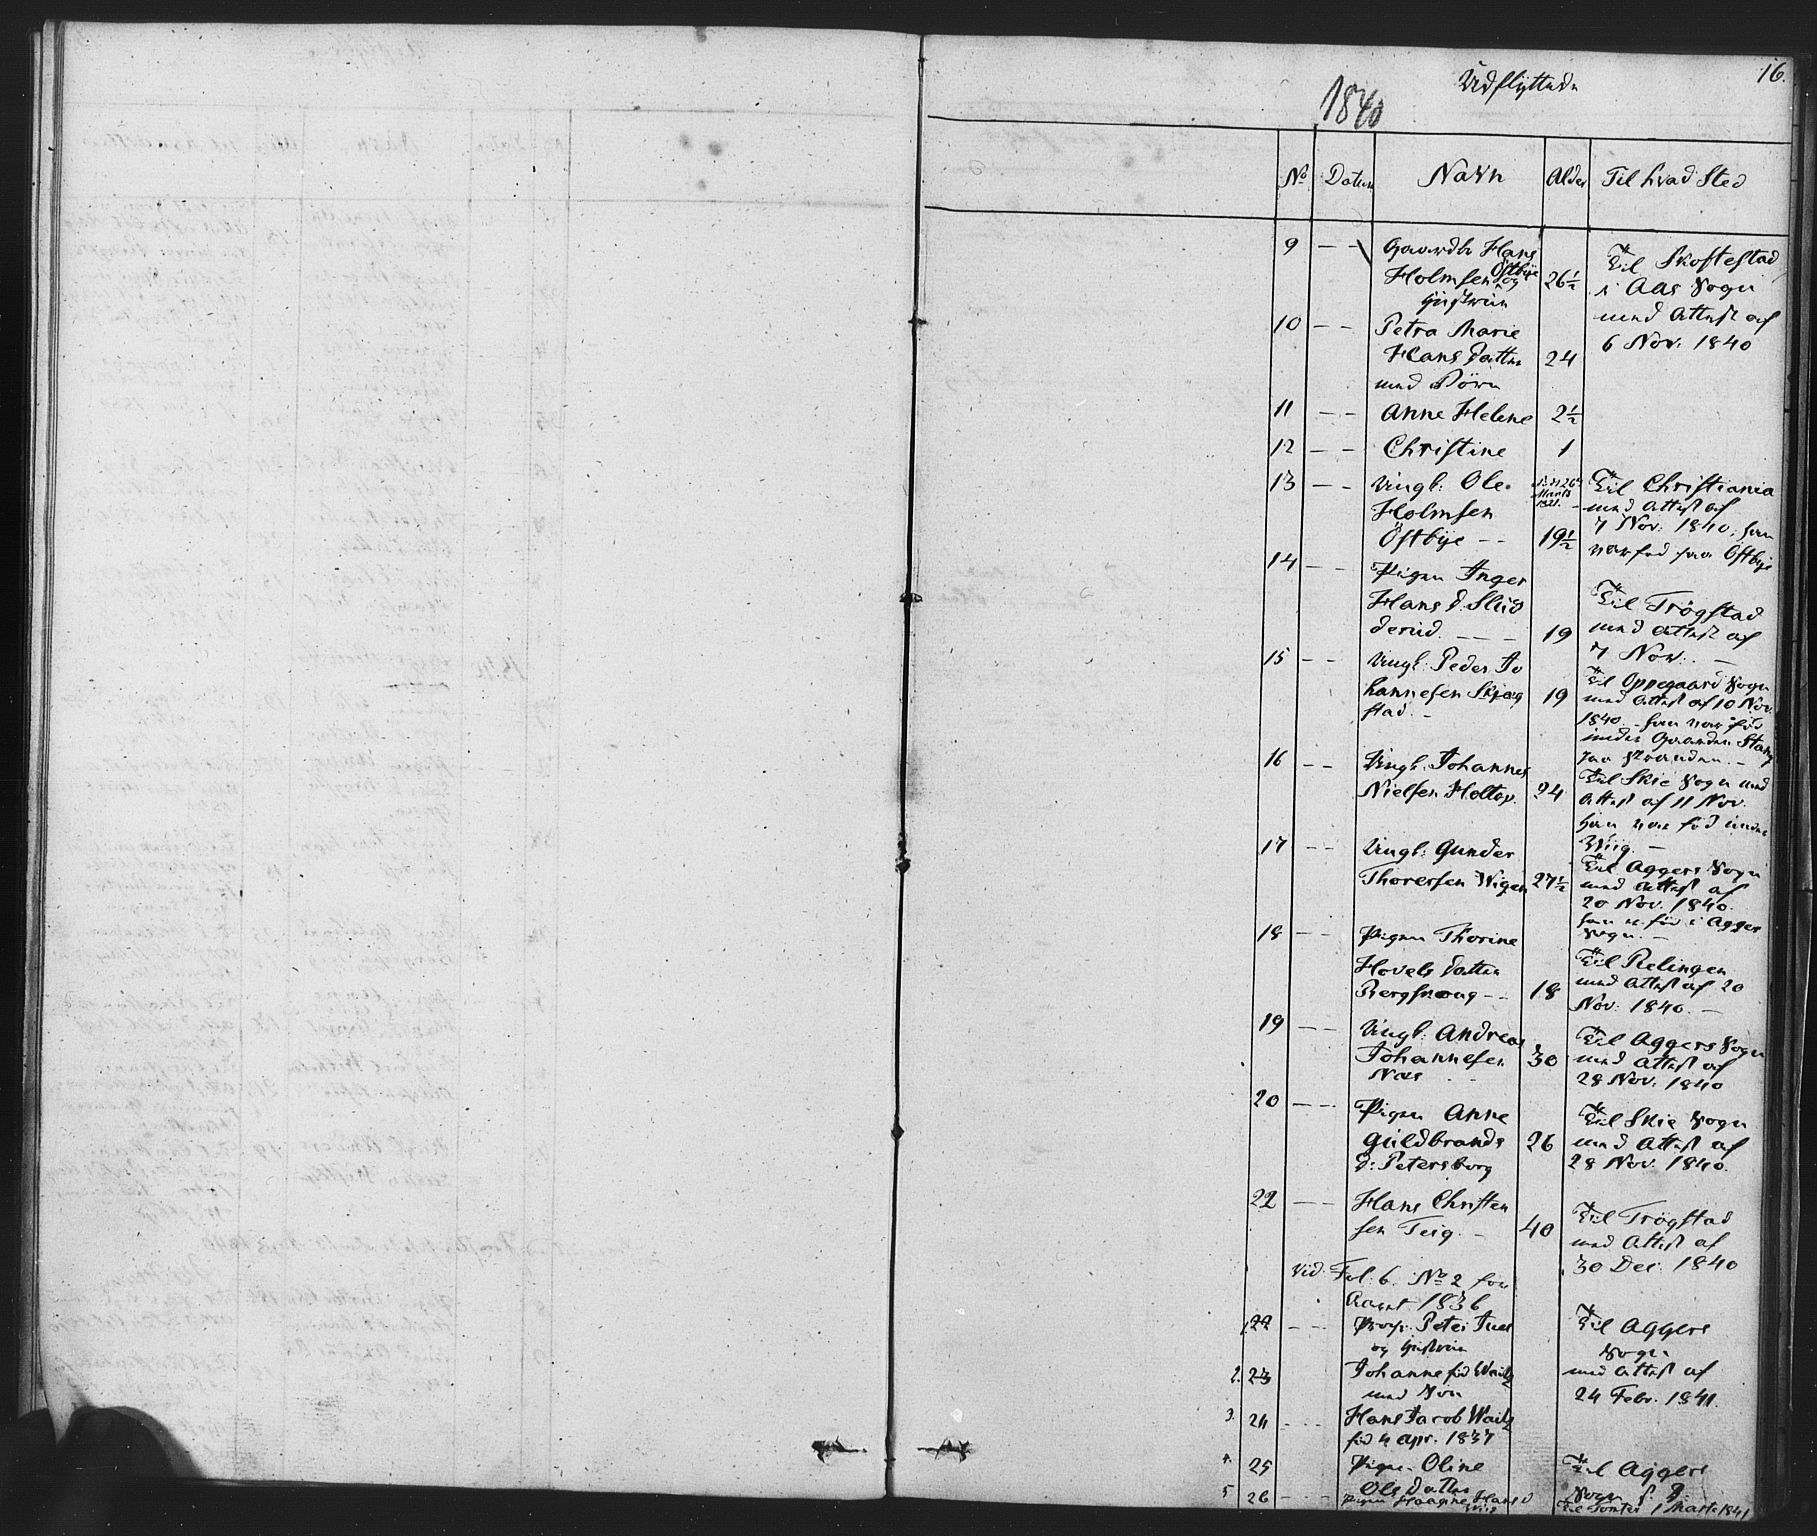 16.
Udflyttede
1840
No Datum Navn Alder Til hvad Sted
9 — — Gaardbr Hans
Holmsen Østbye og 26½
Hustrue
Til Skoftestad
i Aas Sogn
med Attest af
6 Nov. 1840
10 — — Petra Marie
Hans Datter 24
med Børn
11 — — Anne Helene 2½
12 — — Christine 1
13 — — Ungk: Ole
Holmsen
Østbye — — 19½
Marts
1821.
Til Christiania
med Attest af
7 Nov: 1840, han
var fød paa Østbye
14 — — Pigen Inger
Hans d. Slud
derud. — — — 19
Til Trøgstad
med Attest af
7 Nov: —
15 — — Ungk: Peder Jo
hannesen Skjæg 19
stad. —
Til Oppegaard Sogn
med Attest af 10 Nov.
1840 — han var fød
under Gaarden Stang
paa Stranden. —
16 — — Ungk: Johannes
Nielsen Holtop. 24
Til Skie Sogn med
Attest af 11 Nov.
han var fød under
Wiig. —
17 — — Ungk: Gunder
Thoresen Wigen 27½
Til Aggers Sogn
med Attest af
20 Nov. 1840.
han er fød i Agger
Sogn. —
18 — — Pigen Thorine
Hovels Datter
Bergskoug — — 18
Til Relingen
med Attest af 20
Nov: 1840. —
19 — — Ungk: Andreas
Johannesen 30
Næs
Til Aggers Sogn
med Attest af
28 Nov. 1840
20 — — Pigen Anne
Guldbrands 26
d: Petersborg
Til Skie Sogn
med Attest af
28 Nov. 1840.
22 — — Hans Christen
sen Teig. — 40
Til Trøgstad
med Attest af
30 Dec: 1840
Vid: Fol: 6. No 2 for
Aaret 1836
1. 22 — — Peter Juel
og Hustrue
Til Aggers
Sogn
med Attest af
24 Febr. 1841.
2. 23 Johanne fød Waitz
med Søn
3. 24 — — Hans Jacob Waitz
fød 4 Apr. 1837
4. 25 Pigen Oline
Ols Datter
Til Aggers
Sogn
5 26 — — — Pigen Hans d
Til 1 Marts 1841